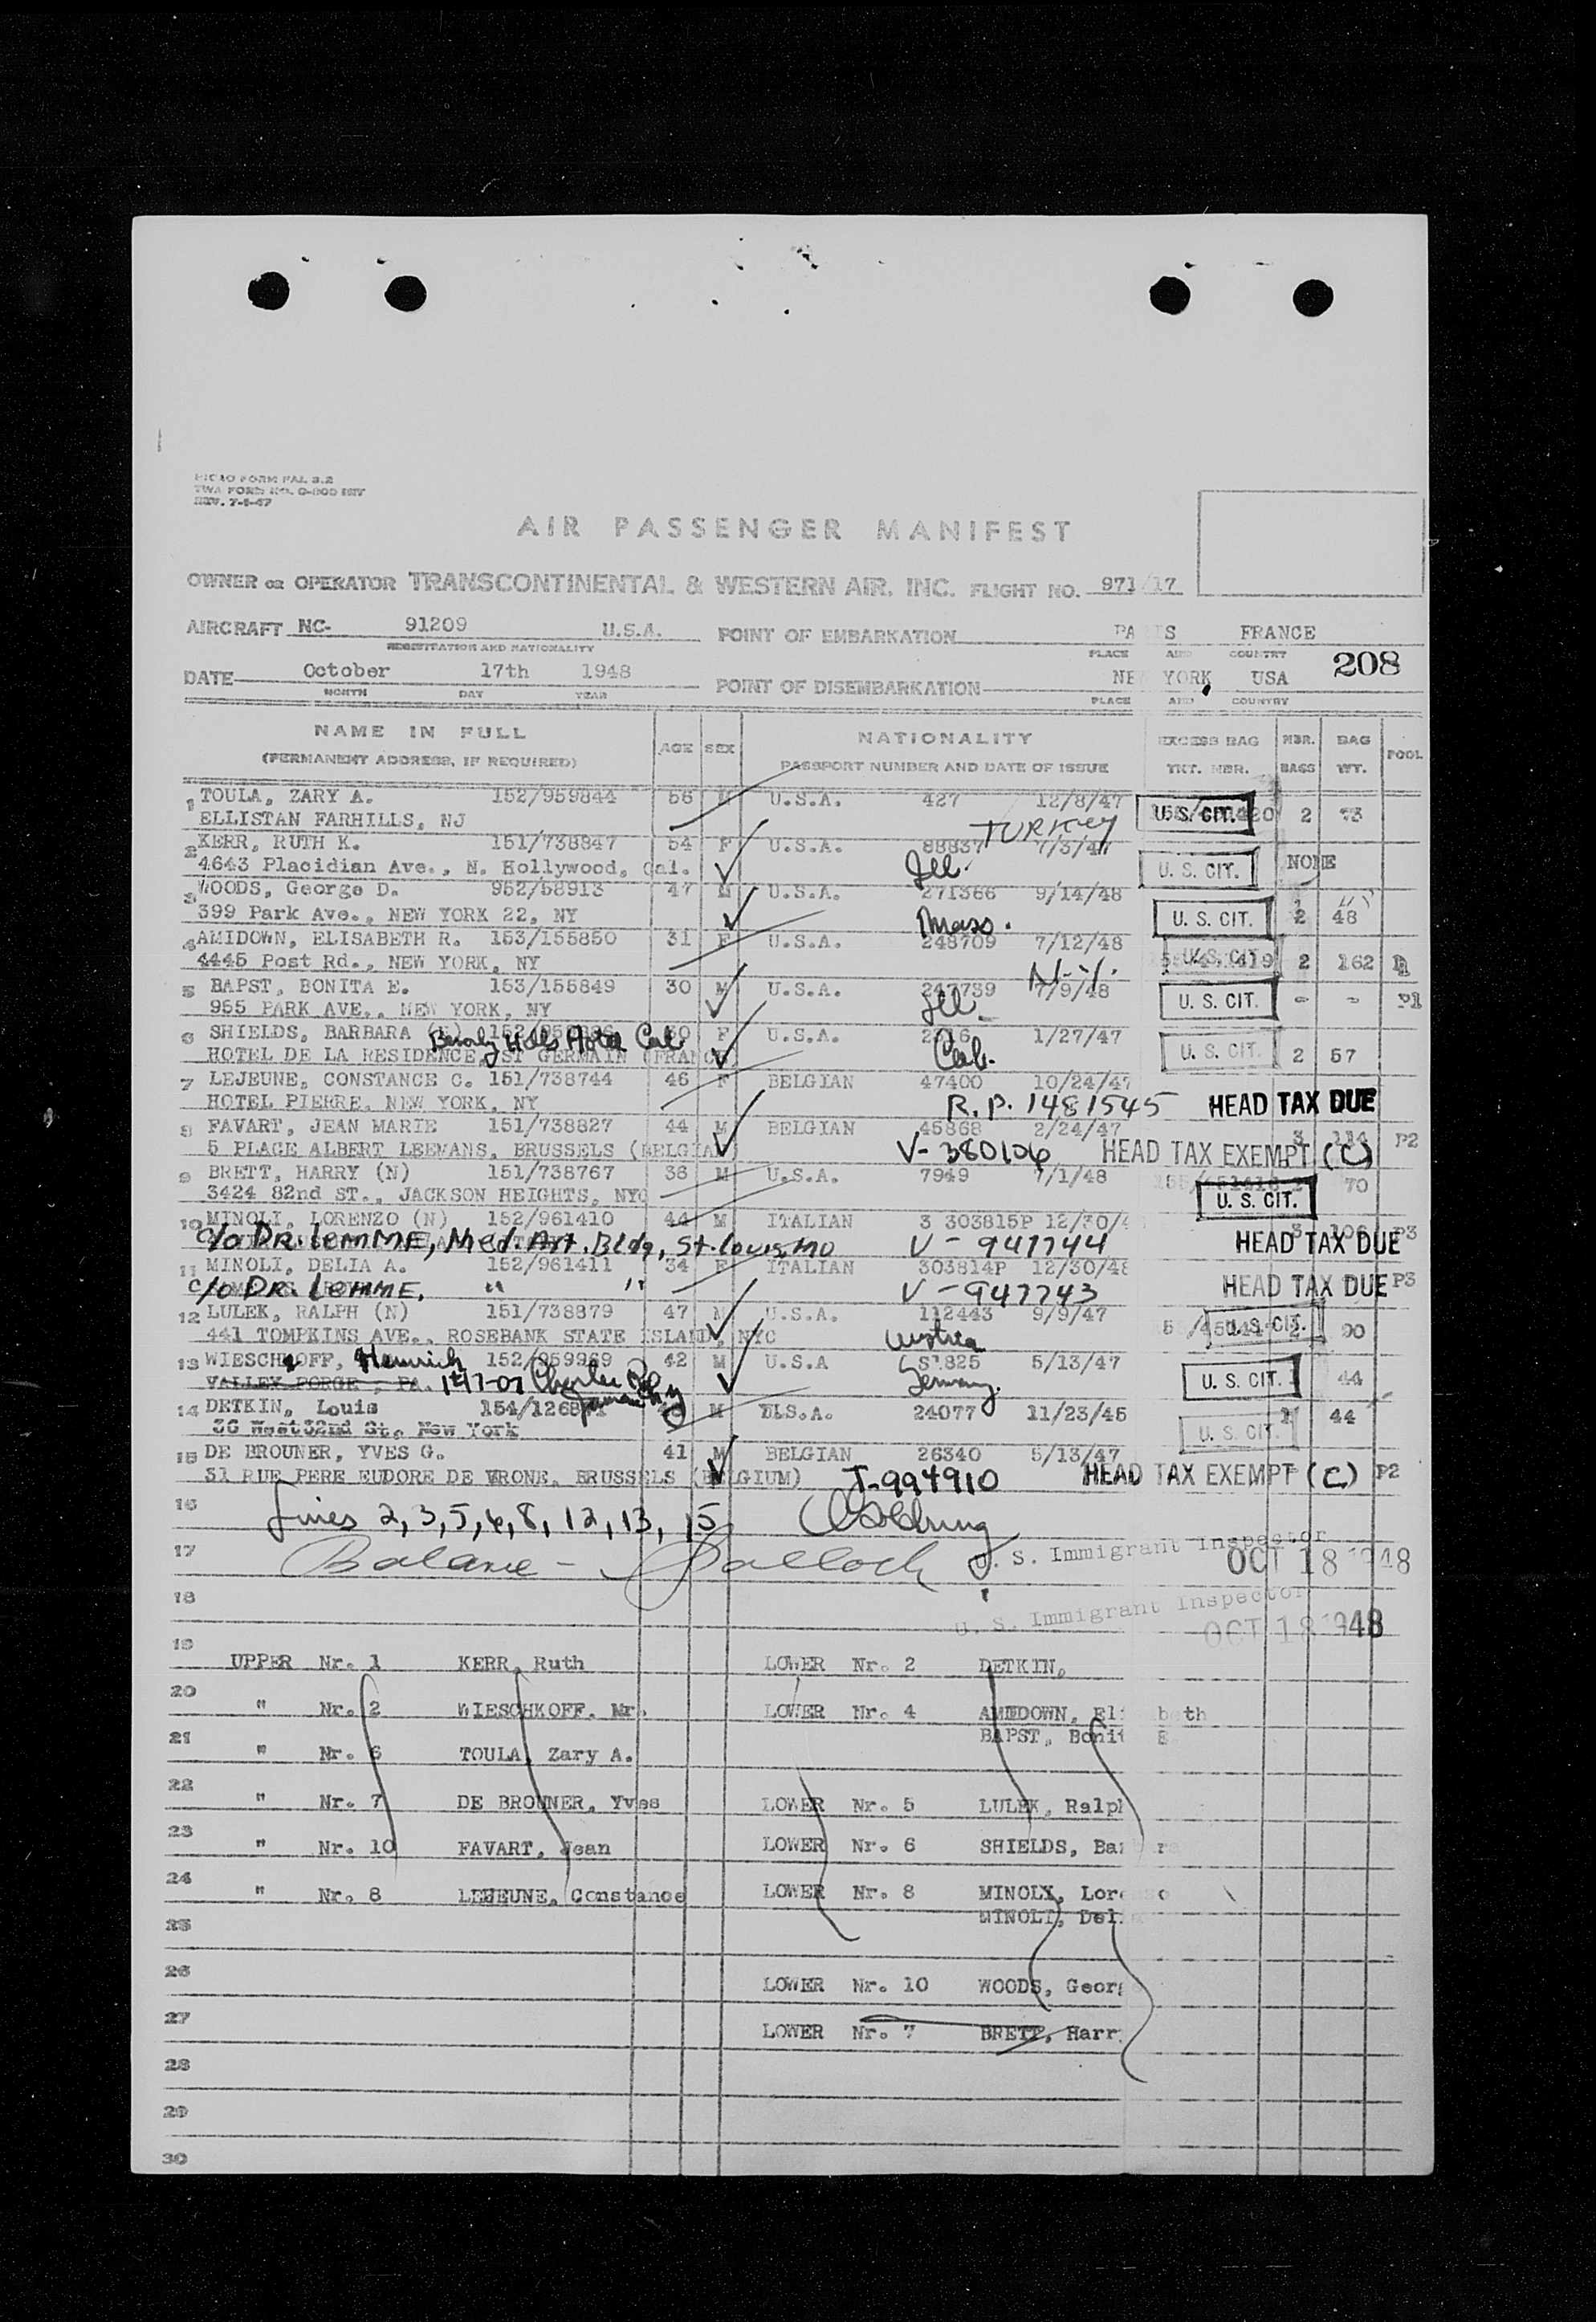 TWA FORM NO. 0-800 INT
REV. 7-1-47
AIR PASSENGER MANIFEST
OWNER OR OPERATOR TRANSCONTINENTAL & WESTERN AIR, INC. FLIGHT NO. 971/17
AIRCRAFT NC- 91209 U.S.A. POINT OF EMBARKATION PA IS FRANCE
REGISTRATION AND NATIONALITY PLACE AND COUNTRY
208
DATE October 17th 1948 POINT OF DISEMBARKATION NE YORK USA
MONTH DAY YEAR PLACE AND COUNTRY
NAME IN FULL AGE SEX NATIONALITY EXCESS BAG NBR. BAG POOL
(PERMANENT ADDRESS, IF REQUIRED) PASSPORT NUMBER AND DATE OF ISSUE TKT. NBR. BAGS WT.
1 TOULA, ZARY A. 152/959844 56 M U.S.A. 427 12/8/47 U.S. CIT. 2 73
ELLISTAN FARHILLS, NJ TURKEY
2 KERR, RUTH K. 151/738847 54 F U.S.A. 88837 7/3/47
4643 Placidian Ave., N. Hollywood, Cal. Ill. U. S. CIT. NONE
3 WOODS, George D. 952/58913 47 M U.S.A. 271366 9/14/48
399 Park Ave., NEW YORK 22, NY Mass. U. S. CIT. 2 48
4 AMIDOWN, ELISABETH R. 153/155850 31 F U.S.A. 248709 7/12/48 U. S. CIT.
4445 Post Rd., NEW YORK, NY N.Y. 2 162
5 BAPST, BONITA E. 153/155849 30 M U.S.A. 247739 7/9/48
955 PARK AVE., NEW YORK, NY Ill. U. S. CIT. - - P1
6 SHIELDS, BARBARA 30 F U.S.A. 1/27/47
Beverly Hills Hotel Cal.
HOTEL DE LA RESIDENCE, ST GERMAIN (FRANCE) Cal. U. S. CIT. 2 57
7 LEJEUNE, CONSTANCE C. 151/738744 46 F BELGIAN 47400 10/24/47
HOTEL PIERRE, NEW YORK, NY R.P. 1481545 HEAD TAX DUE
8 FAVART, JEAN MARIE 151/738827 44 M BELGIAN 45868 2/24/47 3 114 P2
5 PLACE ALBERT LEEMANS, BRUSSELS (BELGIAN) V-380106 HEAD TAX EXEMPT (C)
9 BRETT, HARRY (N) 151/738767 36 M U.S.A. 7949 7/1/48 70
3424 82nd ST., JACKSON HEIGHTS, NYC U. S. CIT.
10 MINOLI, LORENZO (N) 152/961410 44 M ITALIAN 3 303815P 12/30/4 3 106 P3
c/o DR. LEMME, Med. Art. Bldg, St. Louis, MO V-947744 HEAD TAX DUE
11 MINOLI, DELIA A. 152/961411 34 F ITALIAN 303814P 12/30/48
c/o DR. LEMME. " " V-947743 HEAD TAX DUE P3
12 LULEK, RALPH (N) 151/738879 47 M U.S.A. 112443 9/9/47
441 TOMPKINS AVE., ROSEBANK STATE ISLAND, NYC Austria U. S. CIT. 2 90
13 WIESCHHOFF, Heinrich 152/959969 42 M U.S.A 51825 5/13/47
VALLEY FORGE, PA. 147-07 Germany U. S. CIT. 44
14 DETKIN, Louis M U.S.A. 24077 11/23/45 1 44
36 West 32nd St., New York U. S. CIT.
15 DE BROUNER, YVES G. 41 M BELGIAN 26340 5/13/47
51 RUE PERE EUDORE DE VRONE, BRUSSELS (BELGIUM) T-994910 HEAD TAX EXEMPT (C) P2
16 Lines 2, 3, 5, 6, 8, 12, 13, 15
17 Balance - U. S. Immigrant Inspector OCT 18 1948
18 U. S. Immigrant Inspector OCT 18 1948
19
UPPER Nr. 1 KERR, Ruth LOWER Nr. 2 DETKIN,
20
" Nr. 2 WIESCHKOFF, Mr. LOWER Nr. 4 AMIDOWN, Eli beth
21 BAPST, Bonit
" Nr. 6 TOULA, Zary A.
22
" Nr. 7 DE BROUNER, Yves LOWER Nr. 5 LULEK, Ralph
23
" Nr. 10 FAVART, Jean LOWER Nr. 6 SHIELDS, Ba
24
" Nr. 8 LEJEUNE, Constance LOWER Nr. 8 MINOLI, Lor
25 MINOLI, Del
26
LOWER Nr. 10 WOODS, Georg
27
LOWER Nr. 7 BRETT, Harr
28
29
30